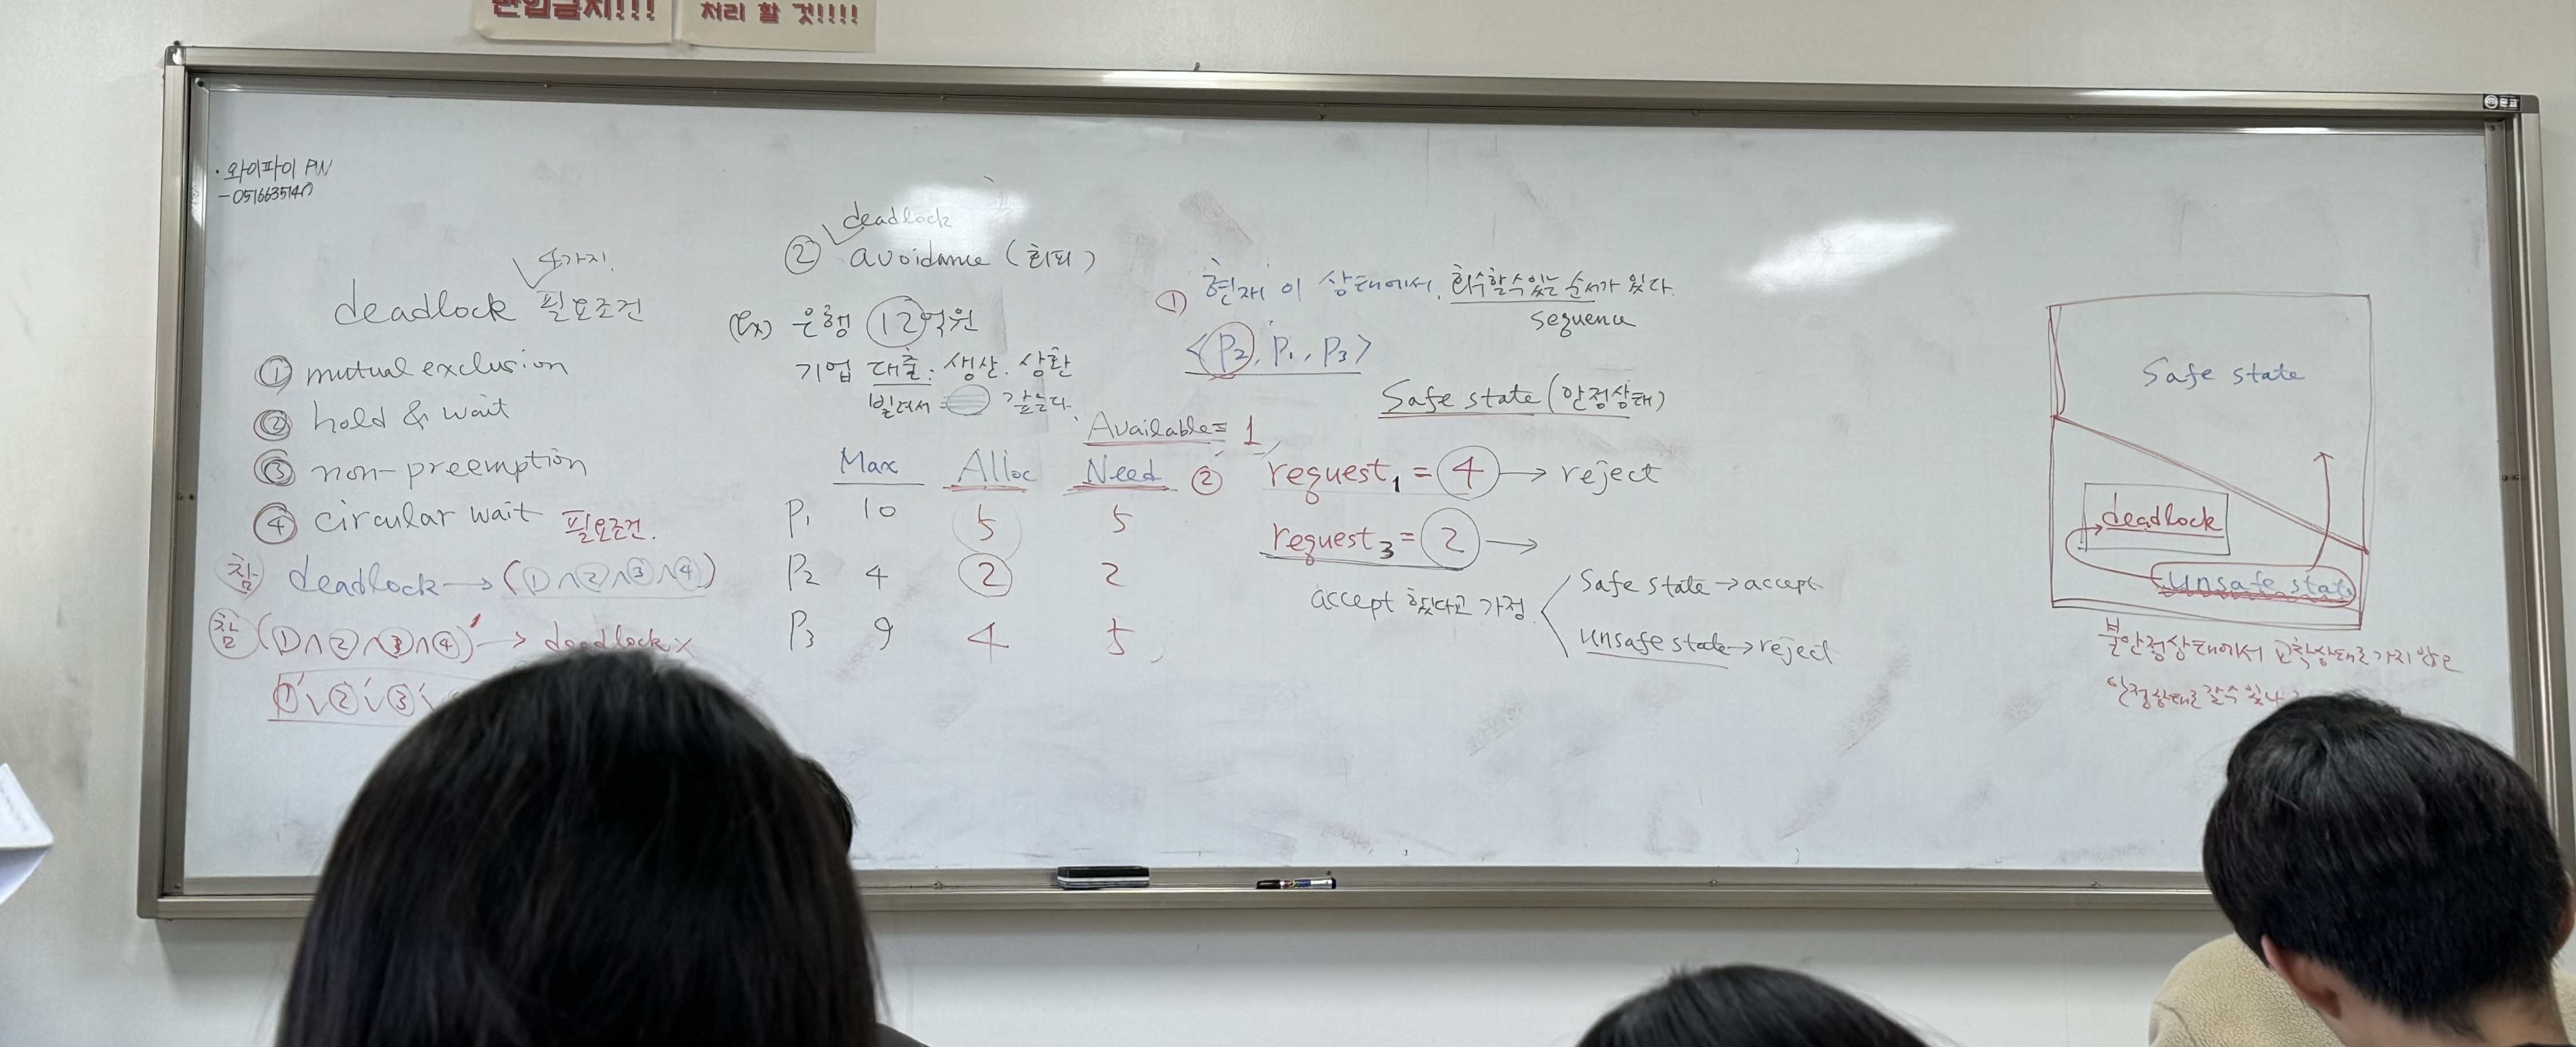 반입금지!!!
처리 할 것!!!!
· 와이파이 PW
4가지.
deadlock 필요조건
① mutual exclusion
② hold & wait
③ non-preemption
④ circular wait 필요조건.
참 deadlock → (①∧②∧③∧④)
참 (①∧②∧③∧④)' → deadlock x
①'∨②'∨③'
deadlock
② avoidance (회피)
(ex) 은행 12억원
기업 대출: 생산. 상환
빌려서 갚는다.
Available = 1
Max Alloc Need
P₁ 10 5 5
P₂ 4 2 2
P₃ 9 4 5
① 현재 이 상태에서, 회수할수있는 순서가 있다.
sequence
<P₂, P₁, P₃>
Safe state (안정상태)
② request₁ = 4 → reject
request₃ = 2 →
accept 했다고 가정.
Safe state → accept
unsafe state → reject
Safe state
deadlock
unsafe state
불안정상태에서 교착상태로 가지 않고
안정상태로 갈수있